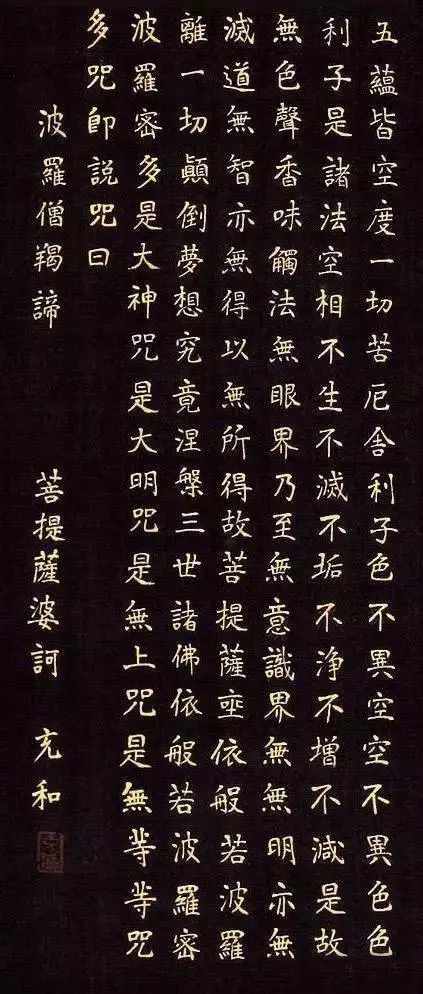 五蘊皆空度一切苦厄舍利子色不異空空不異色色
利子是諸法空相不生不滅不垢不淨不增不減是故
無色聲香味觸法無眼界乃至無意識界無無明亦無
滅道無智亦無得以無所得故菩提薩埵依般若波羅
離一切顛倒夢想究竟涅槃三世諸佛依般若波羅密
波羅密多是大神咒是大明咒是無上咒是無等等咒
多咒即說咒曰
波羅僧羯諦 菩提薩婆訶 充和